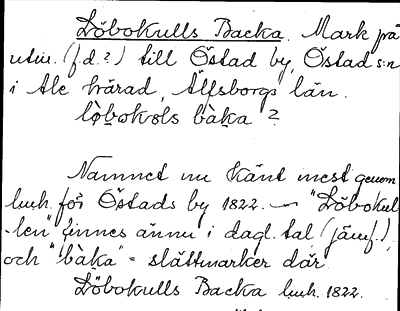 Döbokulls Backa. Mark på
utm. (f.d.?) till Östad by, Östad s:n
i Ale härad, Älfsborgs län.
lö̀bokols bàka ?
Namnet nu känt mest genom
lmh. för Östads by 1822. — "Döbokul-
len" finnes ännu i dagl. tal (jämf.),
och "bàka" = slåttmarker där.
Döbokulls Backa lmh. 1822.